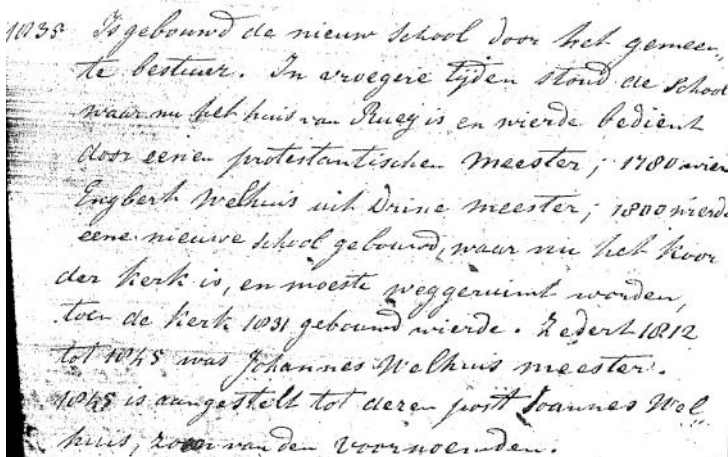 1835 Is gebouwd de nieuw school door het gemeen„
te bestuur. In vroegere tijden stond de school
waar nu het huis van Ruey is en wierde bedient
door eenen protestantischen meester; 1780 wier
Engbert Welhuis uit Drine meester; 1800 wierd
eene nieuwe school gebouwd, waar nu het koor
der kerk is, en moeste weggeruimt worden,
toen de kerk 1831 gebouwd wierde. Zedert 1812
tot 1845 was Johannes Welhuis meester.
1845 is aangestelt tot deren post Joannes Wel„
huis, zoon van den voornoemden.